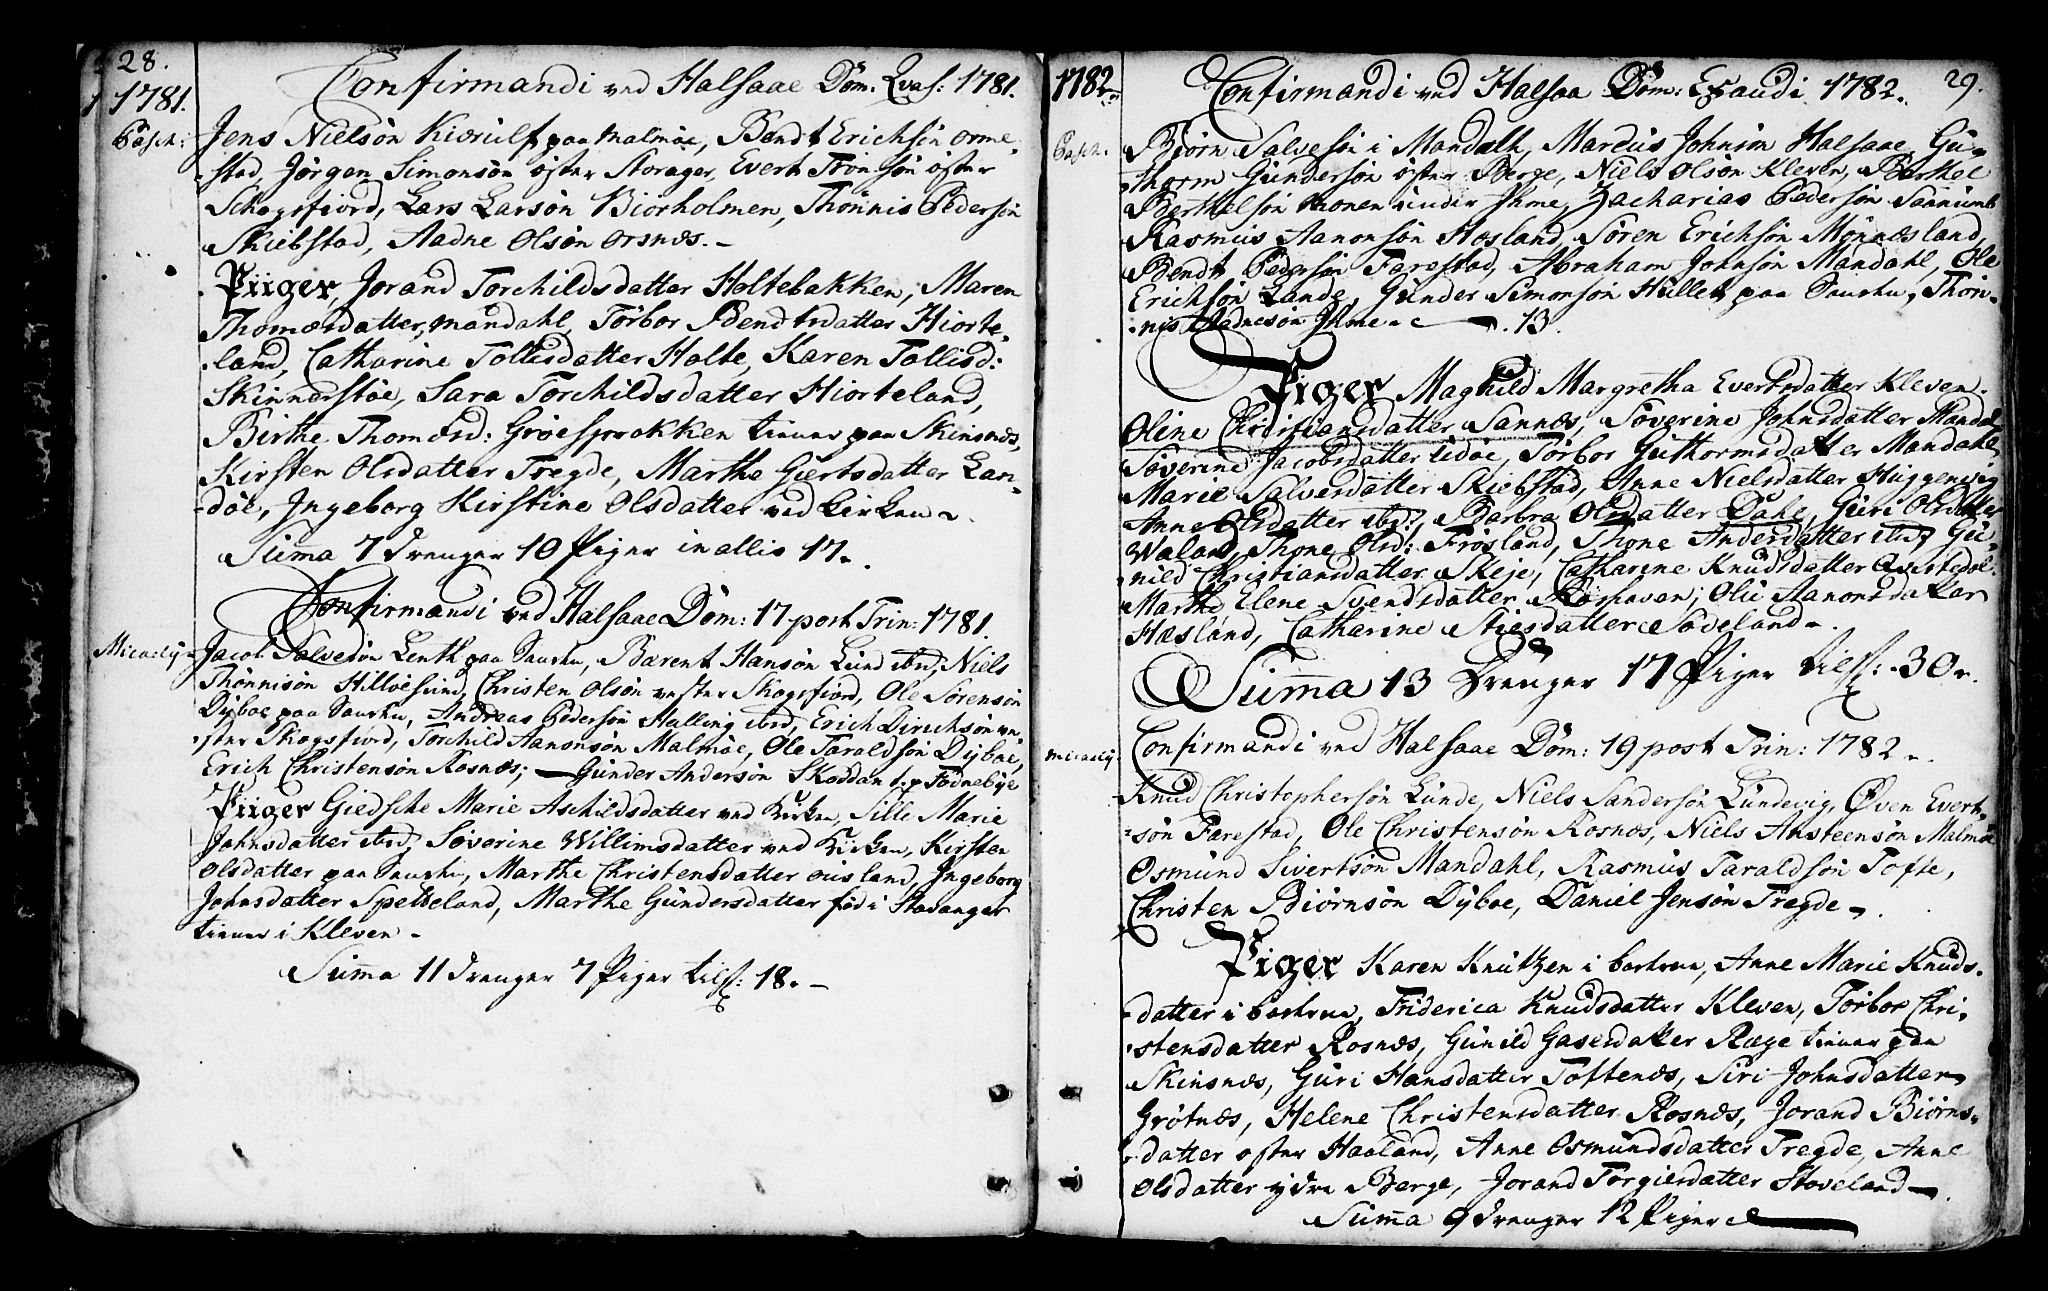 28.
1781.
Pasch:
Confirmandi ved Halsaae Dom. Qvas: 1781.
Jens Nielsøn Kiærulf paa Malmøe, Bendt Erichsøn Orme-
stad, Jørgen Simonsøn øster Storager, Evert Trønsøn øster
Schogsfiord, Lars Larsøn Biørholmen, Thønnis Pedersøn
Skiebstad, Aadne Olsøn Orsnæs.-
Piiger, Jorand Torchildsdatter Holtebakken, Maren
Thomæsdatter Mandahl, Torbor Bendtsdatter Hiorte-
land, Catharine Tollisdatter Holte, Karen Tollisd:
Skinnerstøe, Sara Torchildsdatter Hiorteland,
Birthe Thomæsd: Grøesprokken tiener paa Skinsnæs,
Kirsten Olsdatter Tregde, Marthe Giertsdatter Lan-
døe, Ingeborg Kirstine Olsdatter ved Kirken.
Summa 7 drenger 10 Piger in allis 17.
Confirmandi ved Halsaae Dom: 17 post Trin: 1781.
Micaely
Jacob Salvesøn Lenth paa Sanden, Bærent Hansøn Lund ibid, Niels
Thønnisøn Hilløesund, Christen Olsøn vester Skogsfiord, Ole Sørensøn
Dyboe paa Sanden, Andreas Pedersøn Halling ibid, Erich Dirichsøn ve-
ster Skogsfiord, Torchild Aanonsøn Malmøe, Ole Taraldsøn Dyboe,
Erich Christensøn Rosnæs; Gunder Andersøn Skoddan Fodnebye
Piiger Giedsche Marie Aschildsdatter ved Kirken, Sille Marie
Johnsdatter ibid, Søverine Willimsdatter ved Kirken, Kirsten
Olsdatter paa Sanden, Marthe Christensdatter Ousland, Ingeborg
Johnsdatter Spetteland, Marthe Gundersdatter fød i Stavanger
tiener i Kleven -
Summa 11 drenger 7 Piger tils: 18.-
1782
29.
Pasch.
Confirmandi ved Halsaa Dom: Exaudi 1782.
Biørn Salvesøn i Mandahl, Marcus Johnsøn Halsaae, Gu-
thorm Gundersøn øster Berge, Niels Olsøn Kleven, Berthel
Berthelsøn Monen under Ihme, Zacharias Pedersøn Sannum
Rasmus Aanonsøn Hæsland, Søren Erichsøn Mønnæsland,
Bendt Pedersøn Farestad, Abraham Johnsøn Mandahl, Ole
Erichsøn Lande, Gunder Simonsøn Hullet paa Sanden, Thøn-
nis Aadnesøn Ihme - 13.
Piger Maghild Margretha Evertsdatter Kleven.
Oline Christiansdatter Sannæs, Søverine Johnsdatter Mandal,
Søverine Jacobsdatter Udøe, Torbor Guthormsdatter Mandahl
Marie Salvesdatter Skiebstad, Anne Nielsdatter Huggenvig
Anne Olsdatter ibid:, Barbra Olsdatter Dahl, Guri Olsdatter
Waland, Thone Olsd: Frøsland, Thone Andersdatter ibid, Gu-
nild Christiansdatter Skeje, Catharine Knudsdatter
Marthe Elene Svendsdatter Roshaven; Olie Aanonsdatter
Hæsland, Catharine Stiesdatter Sodeland.
Summa 13 Drenger 17 Piger tils: 30.
micaely.
Confirmandi ved Halsaae Dom: 19 post Trin: 1782.
Knud Christophersøn Lunde, Niels Sandersøn Lundevig, Øven Evert-
søn Farestad, Ole Christensøn Rosnæs, Niels Ansteensøn Malmøe
Osmund Sivertsøn Mandahl, Rasmus Taraldsøn Tofte,
Christen Biørnsøn Dyboe, Daniel Jensøn Tregde.
Piger Karen Knutzen i Barken, Anne Marie Knuds-
datter i Barken, Friderica Knudsdatter Kleven, Torbor Chri-
stensdatter Rosnæs, Gunild Gasesdatter Ræge tiener paa
Skinsnæs, Guri Hansdatter Toftenæs, Siri Johnsdatter
Grøtnæs, Helene Christensdatter Rosnæs, Jorand Biørns-
datter øster Haaland, Anne Osmundsdatter Tregde, Anne
Olsdatter ydre Berge, Jorand Torgiersdatter Stoveland.
Summa 9 drenger 12 Piger